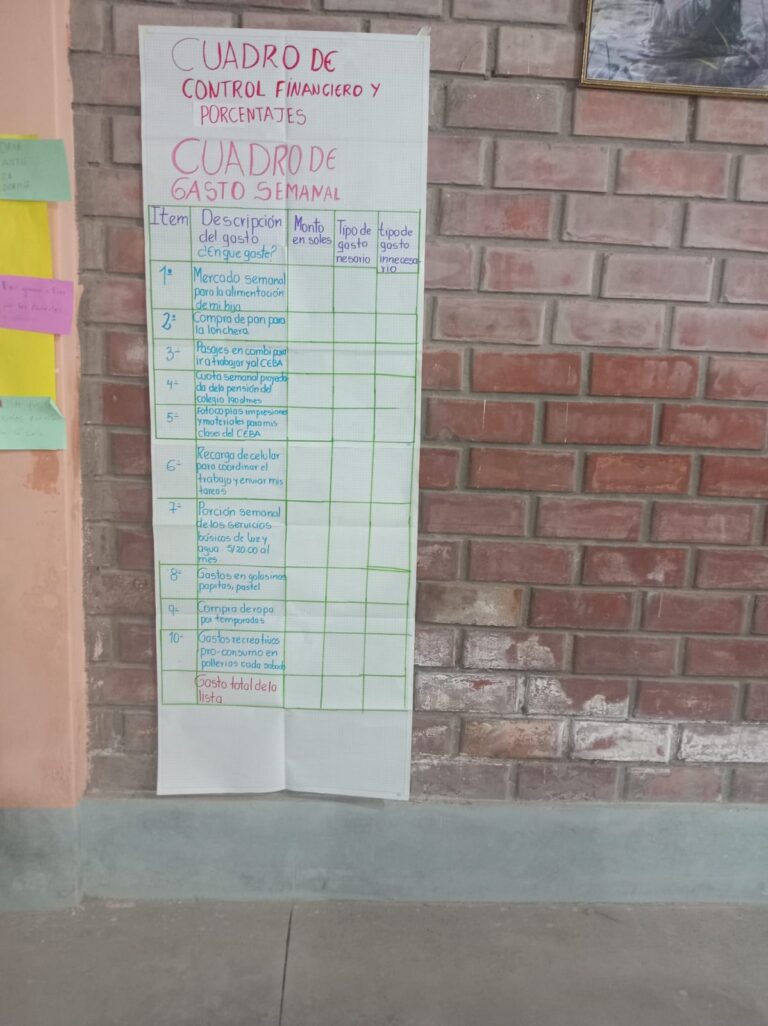 CUADRO DE
CONTROL FINANCIERO Y
PORCENTAJES
CUADRO DE
GASTO SEMANAL
Item
Descripción
del gasto
¿En que gaste?
Monto
en soles
Tipo de
gasto
nesario
tipo de
gasto
innecesa-
rio
1ª
Mercado semanal
para la alimentación
de mi hija
2ª
Compra de pan para
la lonchera
3-
Pasajes en combi para
ir a trabajar y al CEBA
4-
Cuota semanal proyecta
da de la pensión del
colegio 190 al mes
5-
Fotocopias impresiones
y materiales para mis
clases del CEBA
6-
Recarga de celular
para coordinar el
trabajo y enviar mis
tareas
7-
Porción semanal
de los servicios
básicos de luz y
agua S/20.00 al
mes
8-
Gastos en golosinas
papitas, pastel
9-
Compra de ropa
por temporadas
10-
Gastos recreativos
pro-consumo en
pollerias cada sabado
Gasto total de la
lista